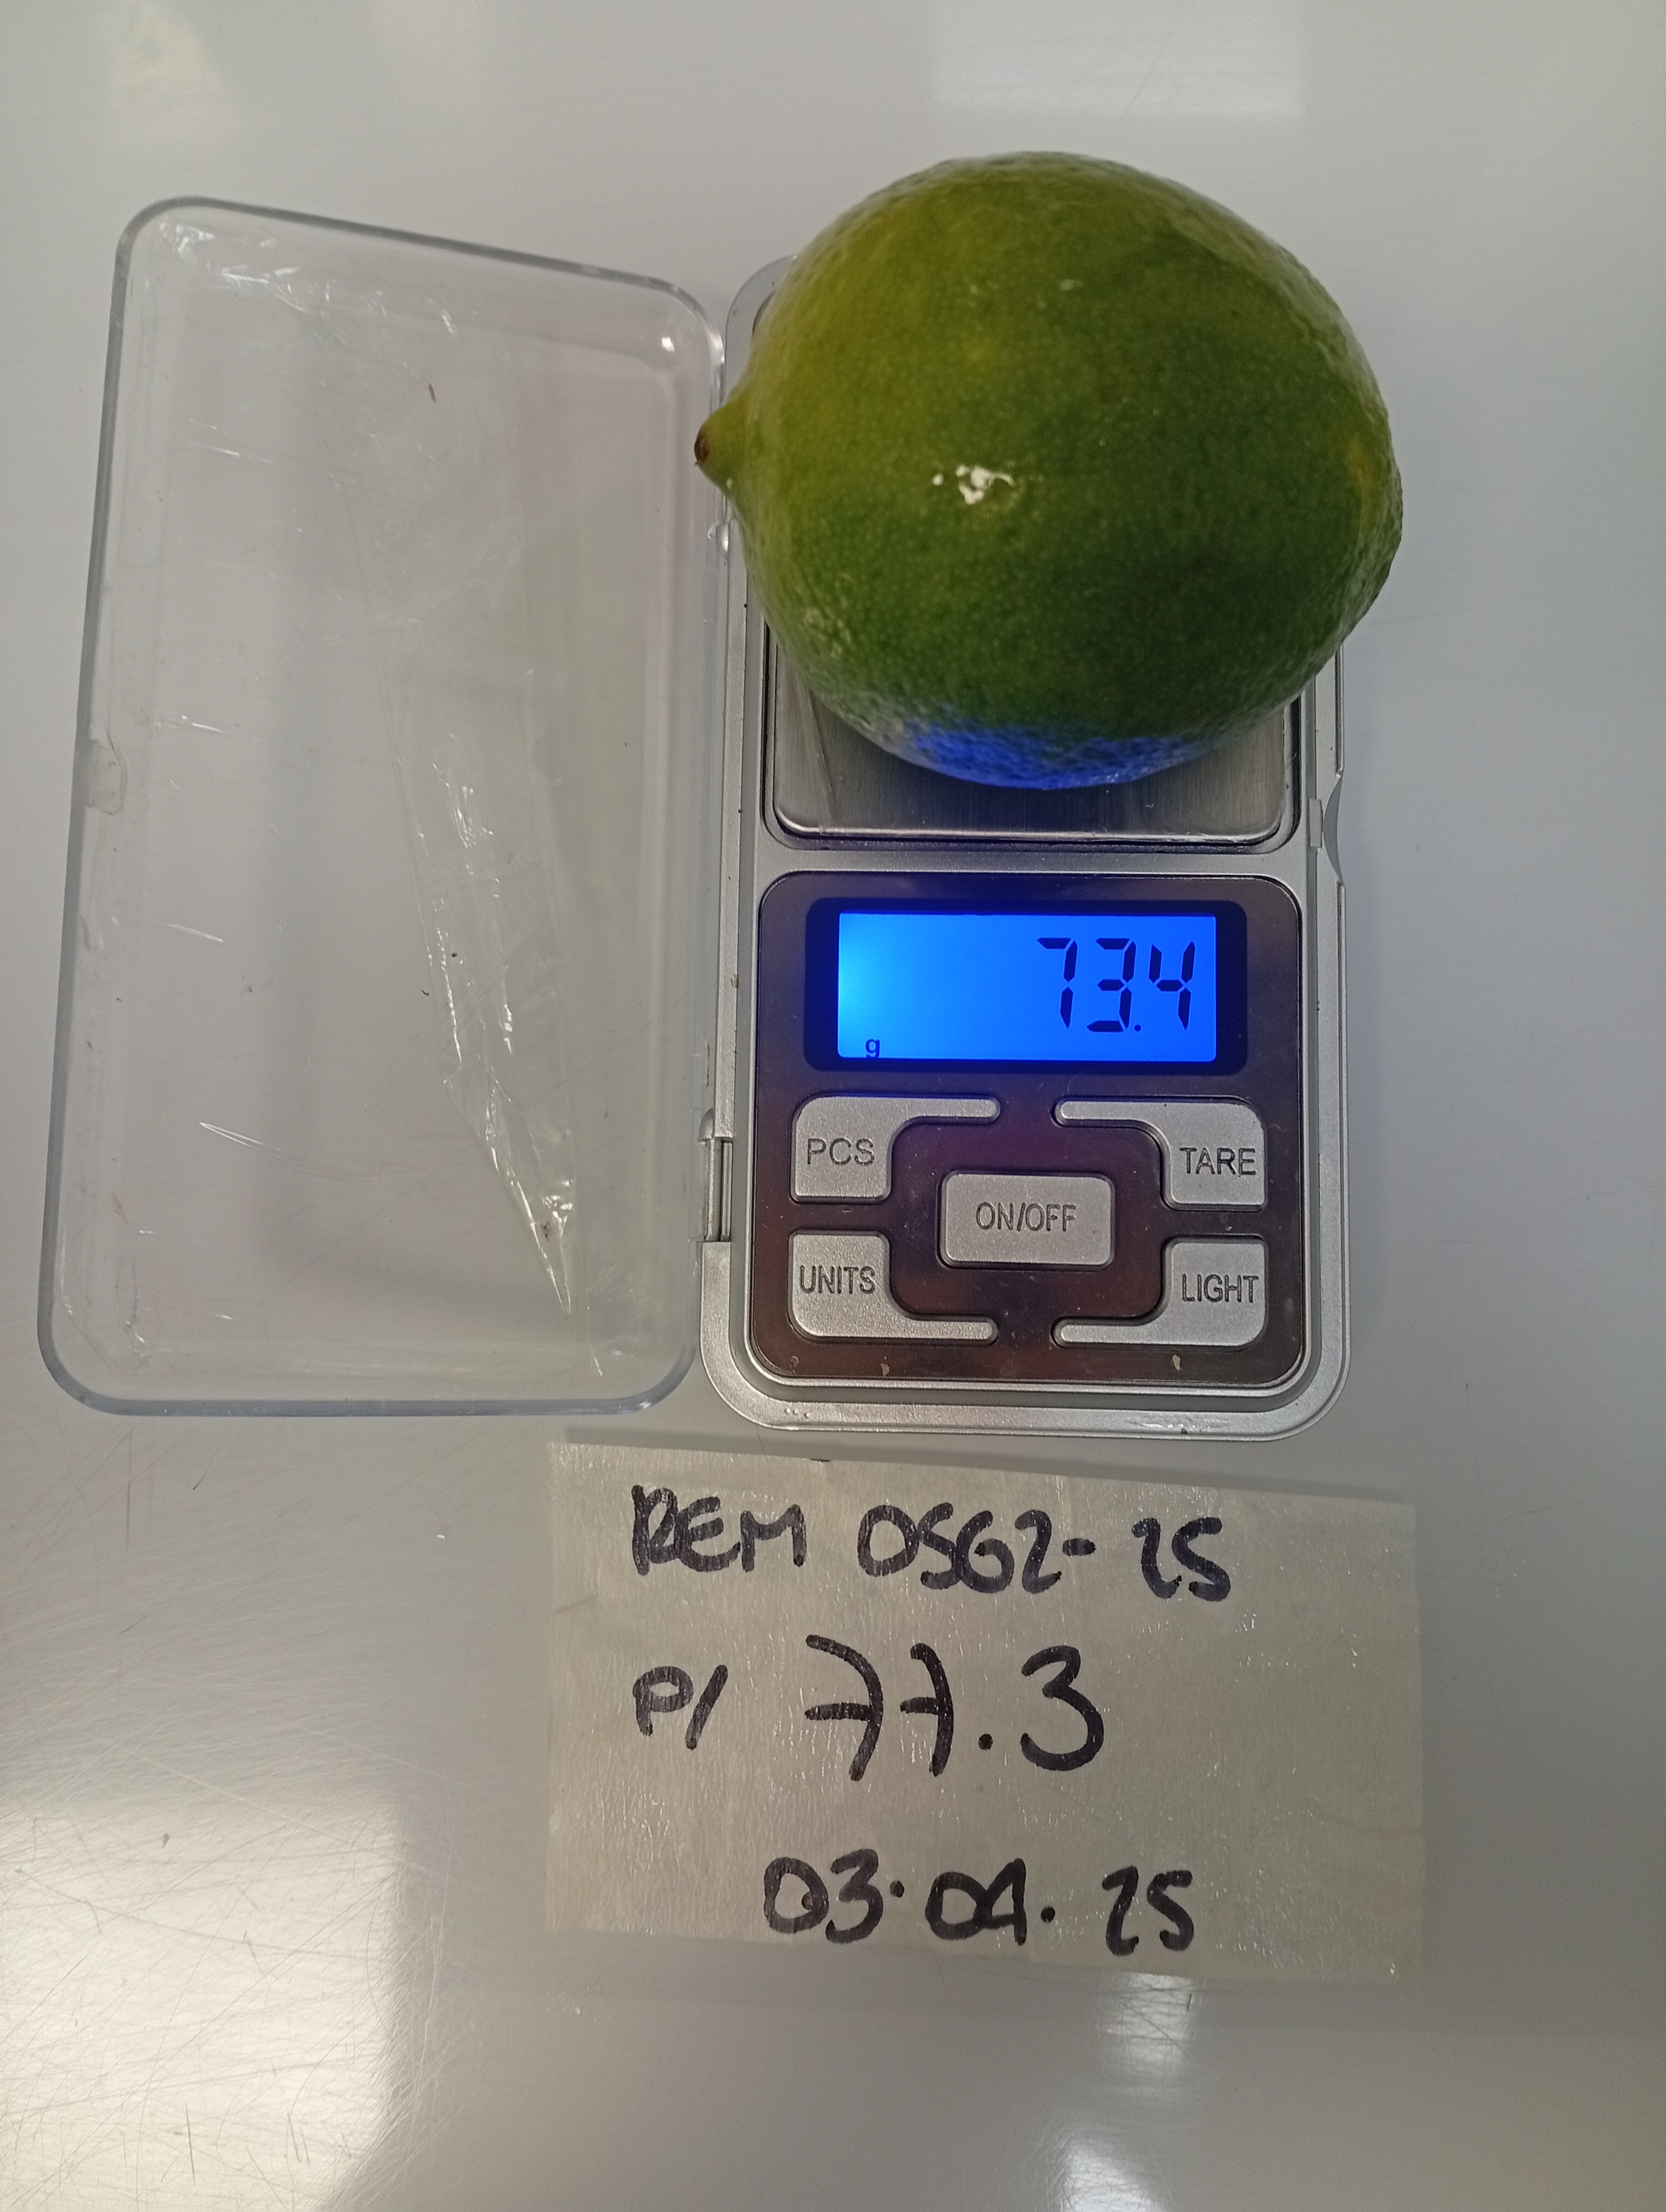 73.4
g
PCS
TARE
ON/OFF
UNITS
LIGHT
REM 0562-25
P/ 77.3
03.04.25